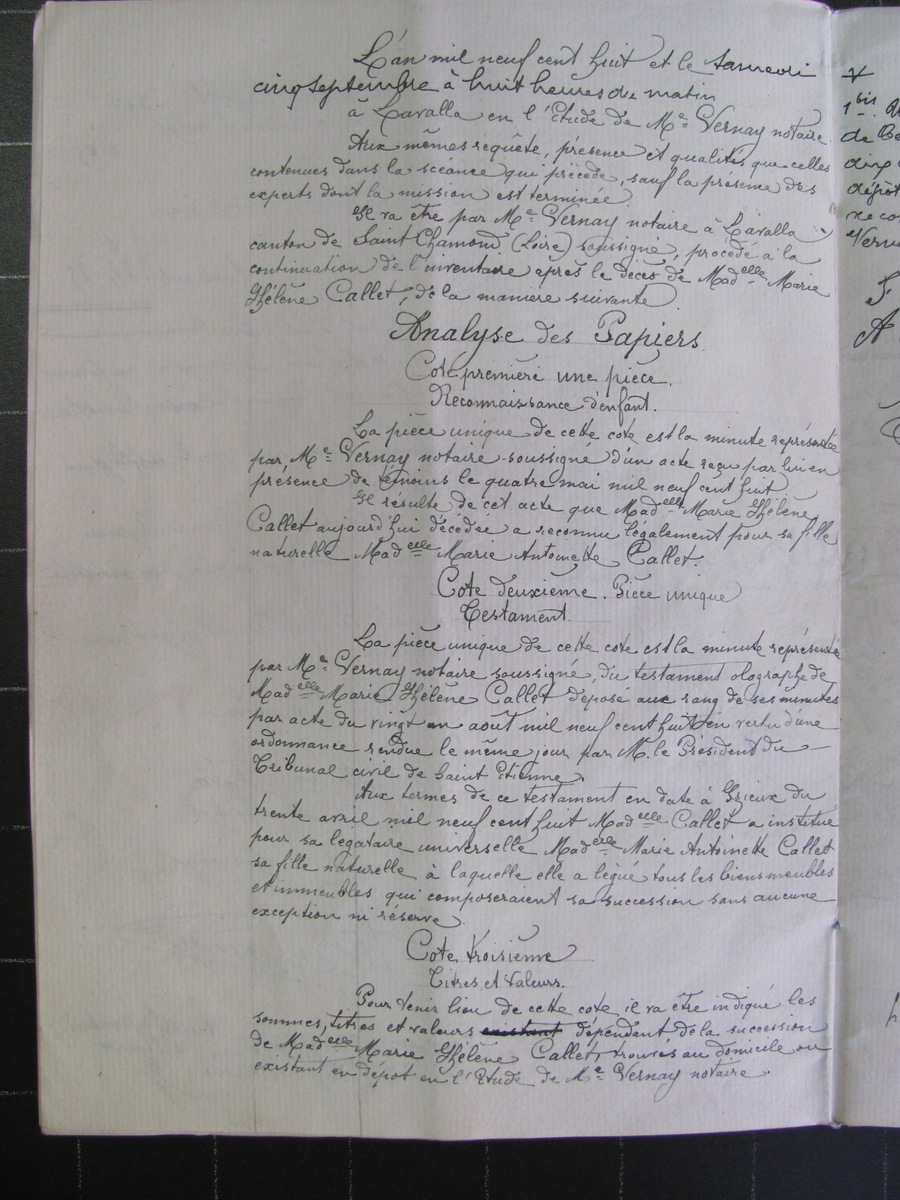 L'an mil neuf cent huit et le samedi
cinq septembre à huit heures du matin
à Lavalla en l'Etude de Me Vernay notaire.
Aux mêmes requête, présence et qualités que celles
contenues dans la scéance qui précède, sauf la présence des
experts dont la mission est terminée
Il va être par Me Vernay notaire à Lavalla
canton de Saint Chamond (Loire) soussigné, procédé à la
continuation de l'inventaire après le décès de Madelle Marie
Hélène Callet, de la manière suivante
Analyse des Papiers
Cote première une pièce.
Reconnaissance d'enfant.
La pièce unique de cette cote est la minute représentée
par Me Vernay notaire soussigné d'un acte reçu par lui en
présence de témoins le quatre mai mil neuf cent huit
Il résulte de cet acte que Madelle Marie Hélène
Callet aujourd'hui décédée a reconnu légalement pour sa fille
naturelle Madelle Marie Antoinette Callet.
Cote deuxième. Pièce unique
Testament.
La pièce unique de cette cote est la minute représentée
par Me Vernay notaire soussigné, du testament olographe de
Madelle Marie Hélène Callet déposé au rang de ses minutes
par acte du vingt un août mil neuf cent huit en vertu d'une
ordonnance rendue le même jour par M. le Président du
Tribunal civil de Saint Etienne.
Aux termes de ce testament en date à Izieux du
trente avril mil neuf cent huit Madelle Callet a institué
pour sa légataire universelle Madelle Marie Antoinette Callet
sa fille naturelle à laquelle elle a légué tous les biens meubles
et immeubles qui composeraient sa succession sans aucune
exception ni réserve.
Cote troisième
Titres et valeurs.
Pour tenir lieu de cette cote il va être indiqué les
sommes, titres et valeurs existant dépendant de la succession
de Madelle Marie Hélène Callet, trouvés au domicile ou
existant en dépot en l'Etude de Me Vernay notaire.
1 bis